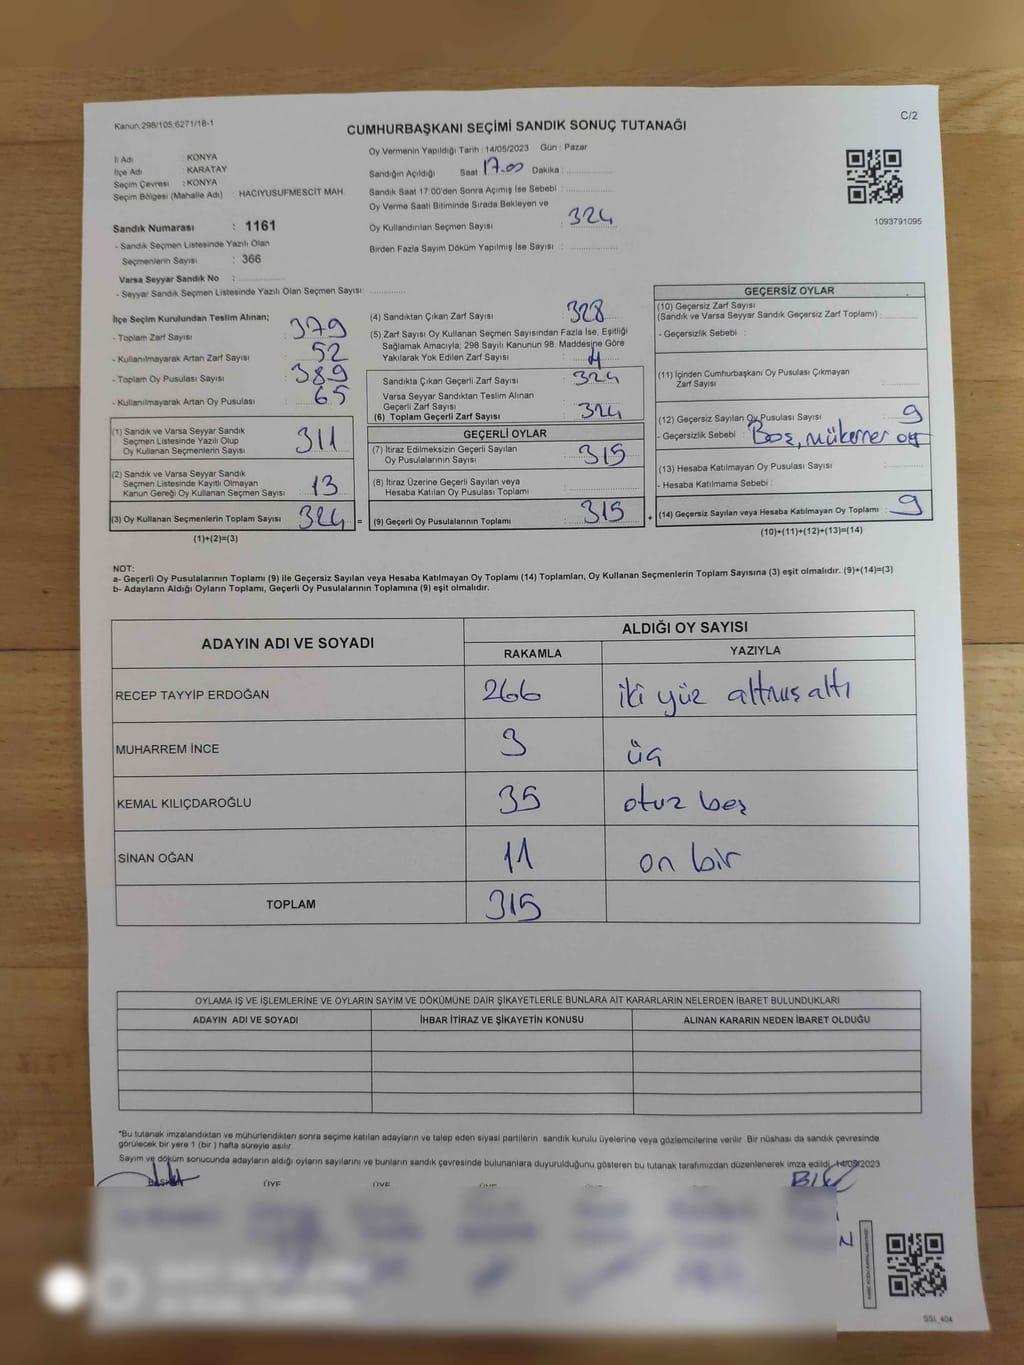 Kanun.298/105;6271/18-1
C/2
CUMHURBAŞKANI SEÇİMİ SANDIK SONUÇ TUTANAĞI
İl Adı : KONYA
İlçe Adı : KARATAY
Seçim Çevresi : KONYA
Seçim Bölgesi (Mahalle Adı) : HACIYUSUFMESCİT MAH.
Sandık Numarası : 1161
- Sandık Seçmen Listesinde Yazılı Olan
Seçmenlerin Sayısı : 366
Varsa Seyyar Sandık No :
- Seyyar Sandık Seçmen Listesinde Yazılı Olan Seçmen Sayısı:
Oy Vermenin Yapıldığı Tarih : 14/05/2023 Gün : Pazar
Sandığın Açıldığı Saat 17.00 Dakika :
Sandık Saat 17:00'den Sonra Açılmış İse Sebebi :
Oy Verme Saati Bitiminde Sırada Bekleyen ve
Oy Kullandırılan Seçmen Sayısı : 324
Birden Fazla Sayım Döküm Yapılmış İse Sayısı :
1093791095
İlçe Seçim Kurulundan Teslim Alınan;
- Toplam Zarf Sayısı : 379
- Kullanılmayarak Artan Zarf Sayısı : 52
- Toplam Oy Pusulası Sayısı : 389
- Kullanılmayarak Artan Oy Pusulası : 65
(1) Sandık ve Varsa Seyyar Sandık
Seçmen Listesinde Yazılı Olup
Oy Kullanan Seçmenlerin Sayısı : 311
(2) Sandık ve Varsa Seyyar Sandık
Seçmen Listesinde Kayıtlı Olmayan
Kanun Gereği Oy Kullanan Seçmen Sayısı : 13
(3) Oy Kullanan Seçmenlerin Toplam Sayısı : 324 =
(1)+(2)=(3)
(4) Sandıktan Çıkan Zarf Sayısı : 328
(5) Zarf Sayısı Oy Kullanan Seçmen Sayısından Fazla İse, Eşitliği
Sağlamak Amacıyla; 298 Sayılı Kanunun 98. Maddesine Göre
Yakılarak Yok Edilen Zarf Sayısı : 4
Sandıkta Çıkan Geçerli Zarf Sayısı : 324
Varsa Seyyar Sandıktan Teslim Alınan
Geçerli Zarf Sayısı
(6) Toplam Geçerli Zarf Sayısı : 324
GEÇERLİ OYLAR
(7) İtiraz Edilmeksizin Geçerli Sayılan
Oy Pusulalarının Sayısı : 315
(8) İtiraz Üzerine Geçerli Sayılan veya
Hesaba Katılan Oy Pusulası Toplamı :
(9) Geçerli Oy Pusulalarının Toplamı : 315 +
GEÇERSİZ OYLAR
(10) Geçersiz Zarf Sayısı
(Sandık ve Varsa Seyyar Sandık Geçersiz Zarf Toplamı) :
- Geçersizlik Sebebi :
(11) İçinden Cumhurbaşkanı Oy Pusulası Çıkmayan
Zarf Sayısı :
(12) Geçersiz Sayılan Oy Pusulası Sayısı : 9
- Geçersizlik Sebebi : Boş, mükerrer oy
(13) Hesaba Katılmayan Oy Pusulası Sayısı :
- Hesaba Katılmama Sebebi :
(14) Geçersiz Sayılan veya Hesaba Katılmayan Oy Toplamı : 9
(10)+(11)+(12)+(13)=(14)
NOT:
a- Geçerli Oy Pusulalarının Toplamı (9) ile Geçersiz Sayılan veya Hesaba Katılmayan Oy Toplamı (14) Toplamları, Oy Kullanan Seçmenlerin Toplam Sayısına (3) eşit olmalıdır. (9)+(14)=(3)
b- Adayların Aldığı Oyların Toplamı, Geçerli Oy Pusulalarının Toplamına (9) eşit olmalıdır.
ADAYIN ADI VE SOYADI
ALDIĞI OY SAYISI
RAKAMLA YAZIYLA
RECEP TAYYİP ERDOĞAN 266 iki yüz altmış altı
MUHARREM İNCE 3 üç
KEMAL KILIÇDAROĞLU 35 otuz beş
SİNAN OĞAN 11 on bir
TOPLAM 315
OYLAMA İŞ VE İŞLEMLERİNE VE OYLARIN SAYIM VE DÖKÜMÜNE DAİR ŞİKAYETLERLE BUNLARA AİT KARARLARIN NELERDEN İBARET BULUNDUKLARI
ADAYIN ADI VE SOYADI İHBAR İTİRAZ VE ŞİKAYETİN KONUSU ALINAN KARARIN NEDEN İBARET OLDUĞU
*Bu tutanak imzalandıktan ve mühürlendikten sonra seçime katılan adayların ve talep eden siyasi partilerin sandık kurulu üyelerine veya gözlemcilerine verilir. Bir nüshası da sandık çevresinde
görülecek bir yere 1 (bir) hafta süreyle asılır.
Sayım ve döküm sonucunda adayların aldığı oyların sayılarını ve bunların sandık çevresinde bulunanlara duyurulduğunu gösteren bu tutanak tarafımızdan düzenlenerek imza edildi. 14/05/2023
BAŞKAN ÜYE ÜYE ÜYE ÜYE
SSİ_404